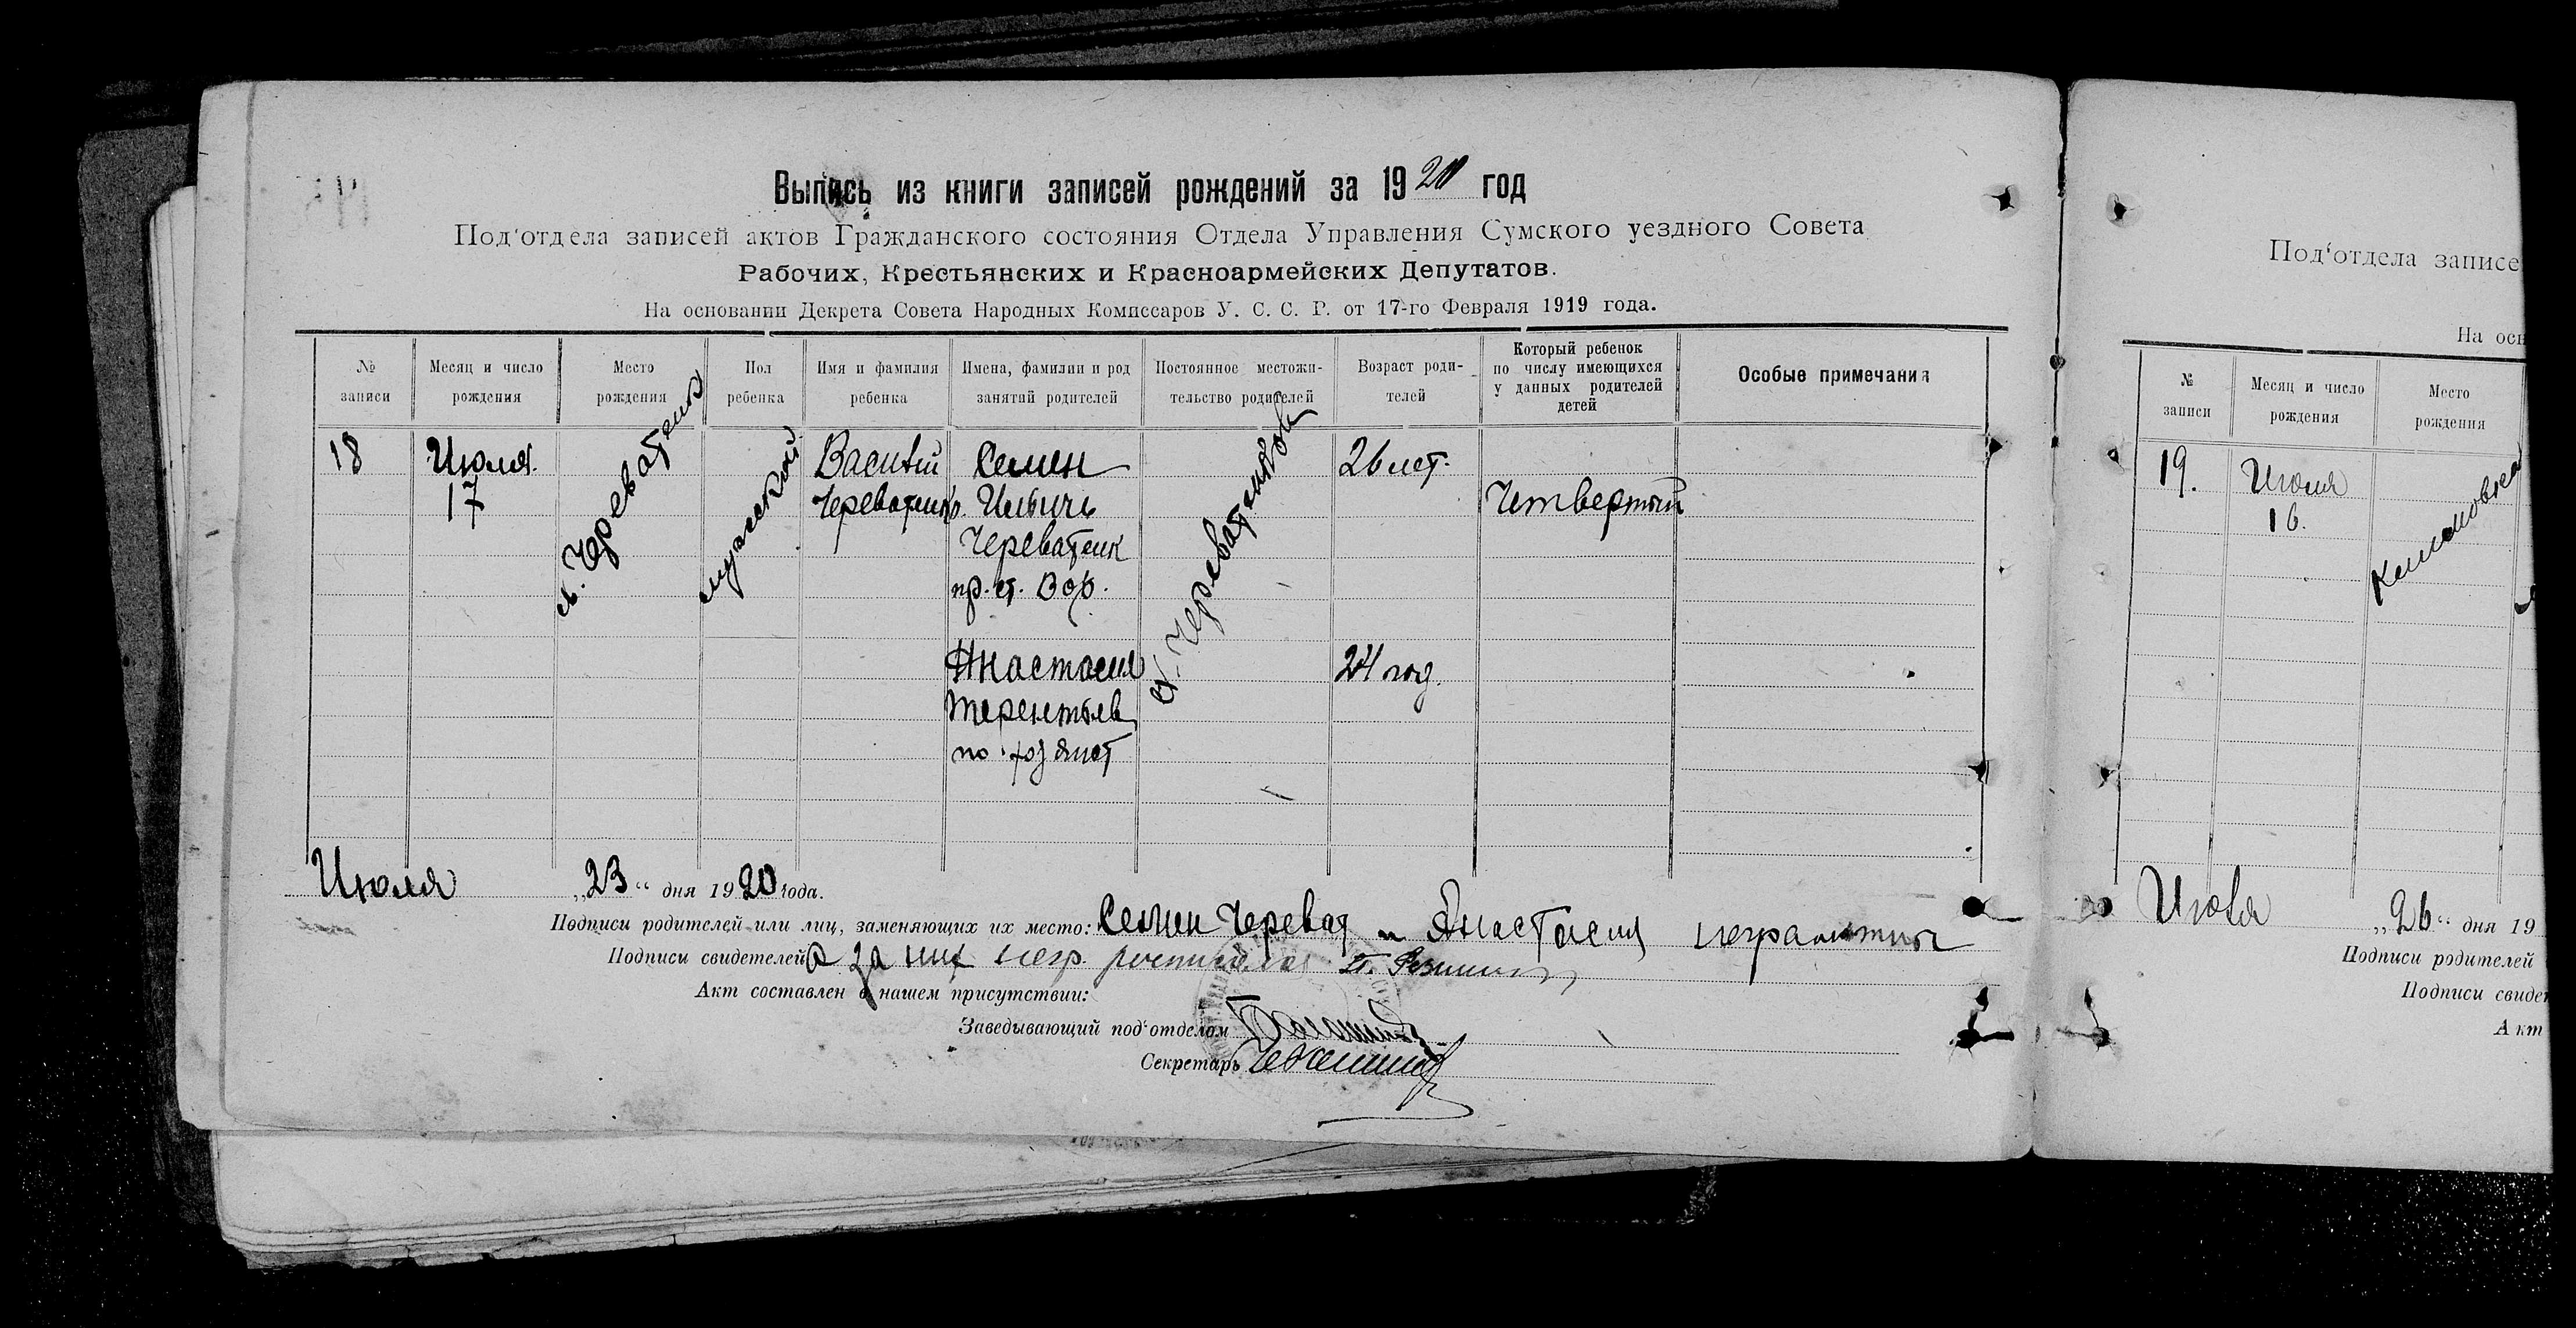 Выпись из книги записей рождений за 1920 год
Под‘отдела записей актов Гражданского состояния Отдела Управления Сумского уездного Совета
Рабочих, Крестьянских и Красноармейских Депутатов.
На основании Декрета Совета Народных Комиссаров У. С. С. Р. от 17-го Февраля 1919 года.
№ записи
Месяц и число рождения
Место рождения
Пол ребенка
Имя и фамилия ребенка
Имена, фамилии и род занятий родителей
Постоянное местожительство родителей
Возраст родителей
Который ребенок по числу имеющихся у данных родителей детей
Особые примечания
18
Июля
17
Череватенк
мужеский
Василий
Череватенко
Семен
Ильичь
Череватенк
Анастасия
Терентьев
по хозяист
х. Череватенков
26 лет.
24 год.
Четвертый
Июля „23“ дня 1920 года.
Подписи родителей или лиц, заменяющих их место: Семен Череват и Анастасия неграмотны
Подписи свидетелей а за них негр. росписался
Акт составлен в нашем присутствии:
Заведывающий под‘отделом
Секретарь
Под‘отдела записе
На осн
№ записи
Месяц и число рождения
Место рождения
19.
Июля
16.
Июля „26“ дня 19
Подписи родителей
Подписи свиде
Акт